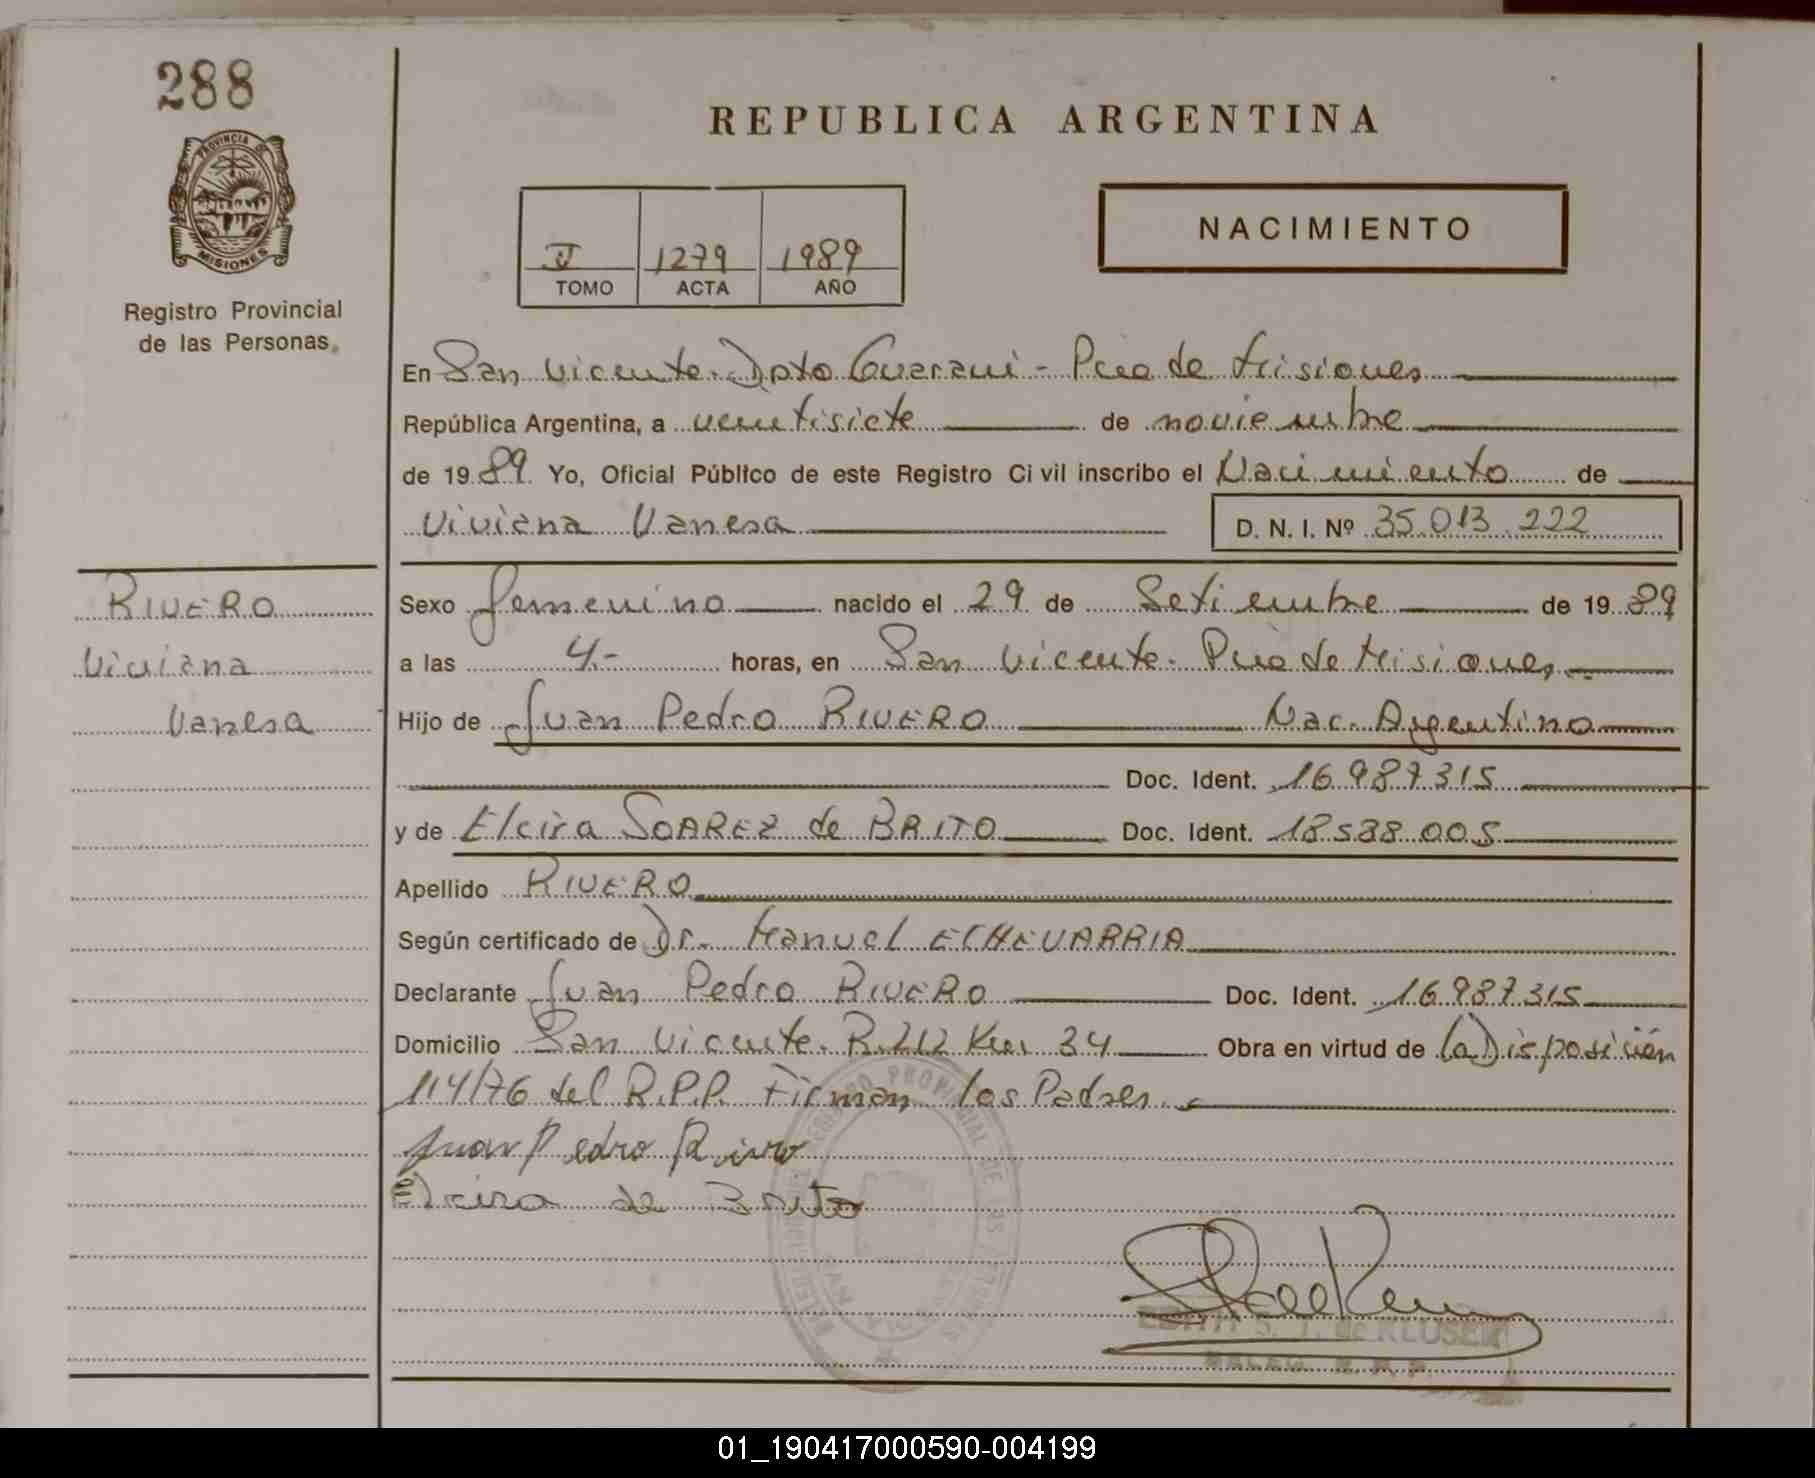 288
PROVINCIA DE
MISIONES
Registro Provincial
de las Personas
REPUBLICA ARGENTINA
NACIMIENTO
II 1279 1989
TOMO ACTA AÑO
En San Vicente. Dpto Guarani - Pcia de Misiones
República Argentina, a veintisiete de noviembre
de 1989 Yo, Oficial Público de este Registro Civil inscribo el Nacimiento de
Viviana Vanesa D. N. I. Nº 35.013.222
RIVERO
Viviana
Vanesa
Sexo femenino nacido el 29 de Setiembre de 1989
a las 4.- horas, en San Vicente. Pcia de Misiones
Hijo de Juan Pedro RIVERO Nac. Argentino
Doc. Ident. 16.987.315
y de Elcira SOAREZ de BRITO Doc. Ident. 18.588.005
Apellido RIVERO
Según certificado de Dr. Manuel ECHEVARRIA
Declarante Juan Pedro RIVERO Doc. Ident. 16.987.315
Domicilio San Vicente. R. 212 Km 34 Obra en virtud de (a) Disposición
114/76 del R.P.P. Firman los Padres.
Juan Pedro Rivero
Elcira de Brito
REGISTRO PROVINCIAL DE LAS PERSONAS
EDITH S. T. de KLUSEN
DELEG. R. P. P.
01_190417000590-004199